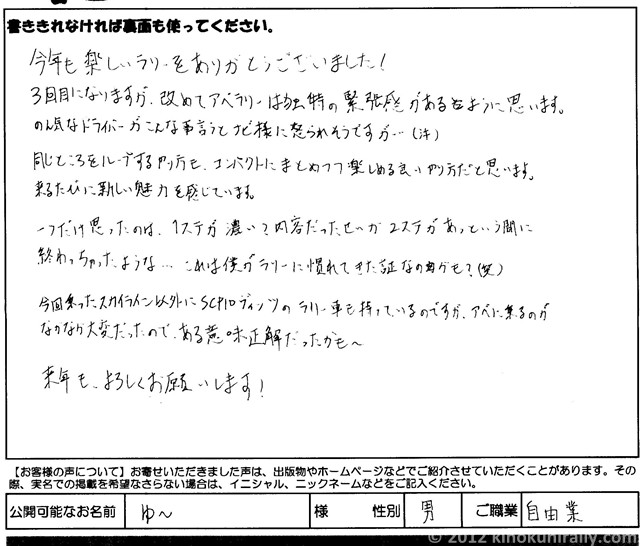 書ききれなければ裏面も使ってください。
今年も楽しいラリーをありがとうございました！
3回目になりますが、改めてアベラリーは独特の緊張感があるように思います。
のん気なドライバーがこんな事言うとナビ様に怒られそうですが…(汗)
同じところをループするやり方も、コンパクトにまとめつつ楽しめる良いやり方だと思います。
来るたびに新しい魅力を感じています。
一つだけ思ったのは、1ステが濃い？内容だったせいか2ステがあっという間に
終わっちゃったような… これは僕がラリーに慣れてきた証なのかも？(笑)
今回乗ったスカイライン以外にSCP10ヴィッツのラリー車も持っているのですが、アベに乗るのが
なかなか大変だったので、ある意味正解だったかも～
来年も、よろしくお願いします！
【お客様の声について】お寄せいただきました声は、出版物やホームページなどでご紹介させていただくことがあります。その
際、実名での掲載を希望なさらない場合は、イニシャル、ニックネームなどをご記入ください。
公開可能なお名前 ゆ～ 様 性別 男 ご職業 自由業
© 2012 kinokunirally.com